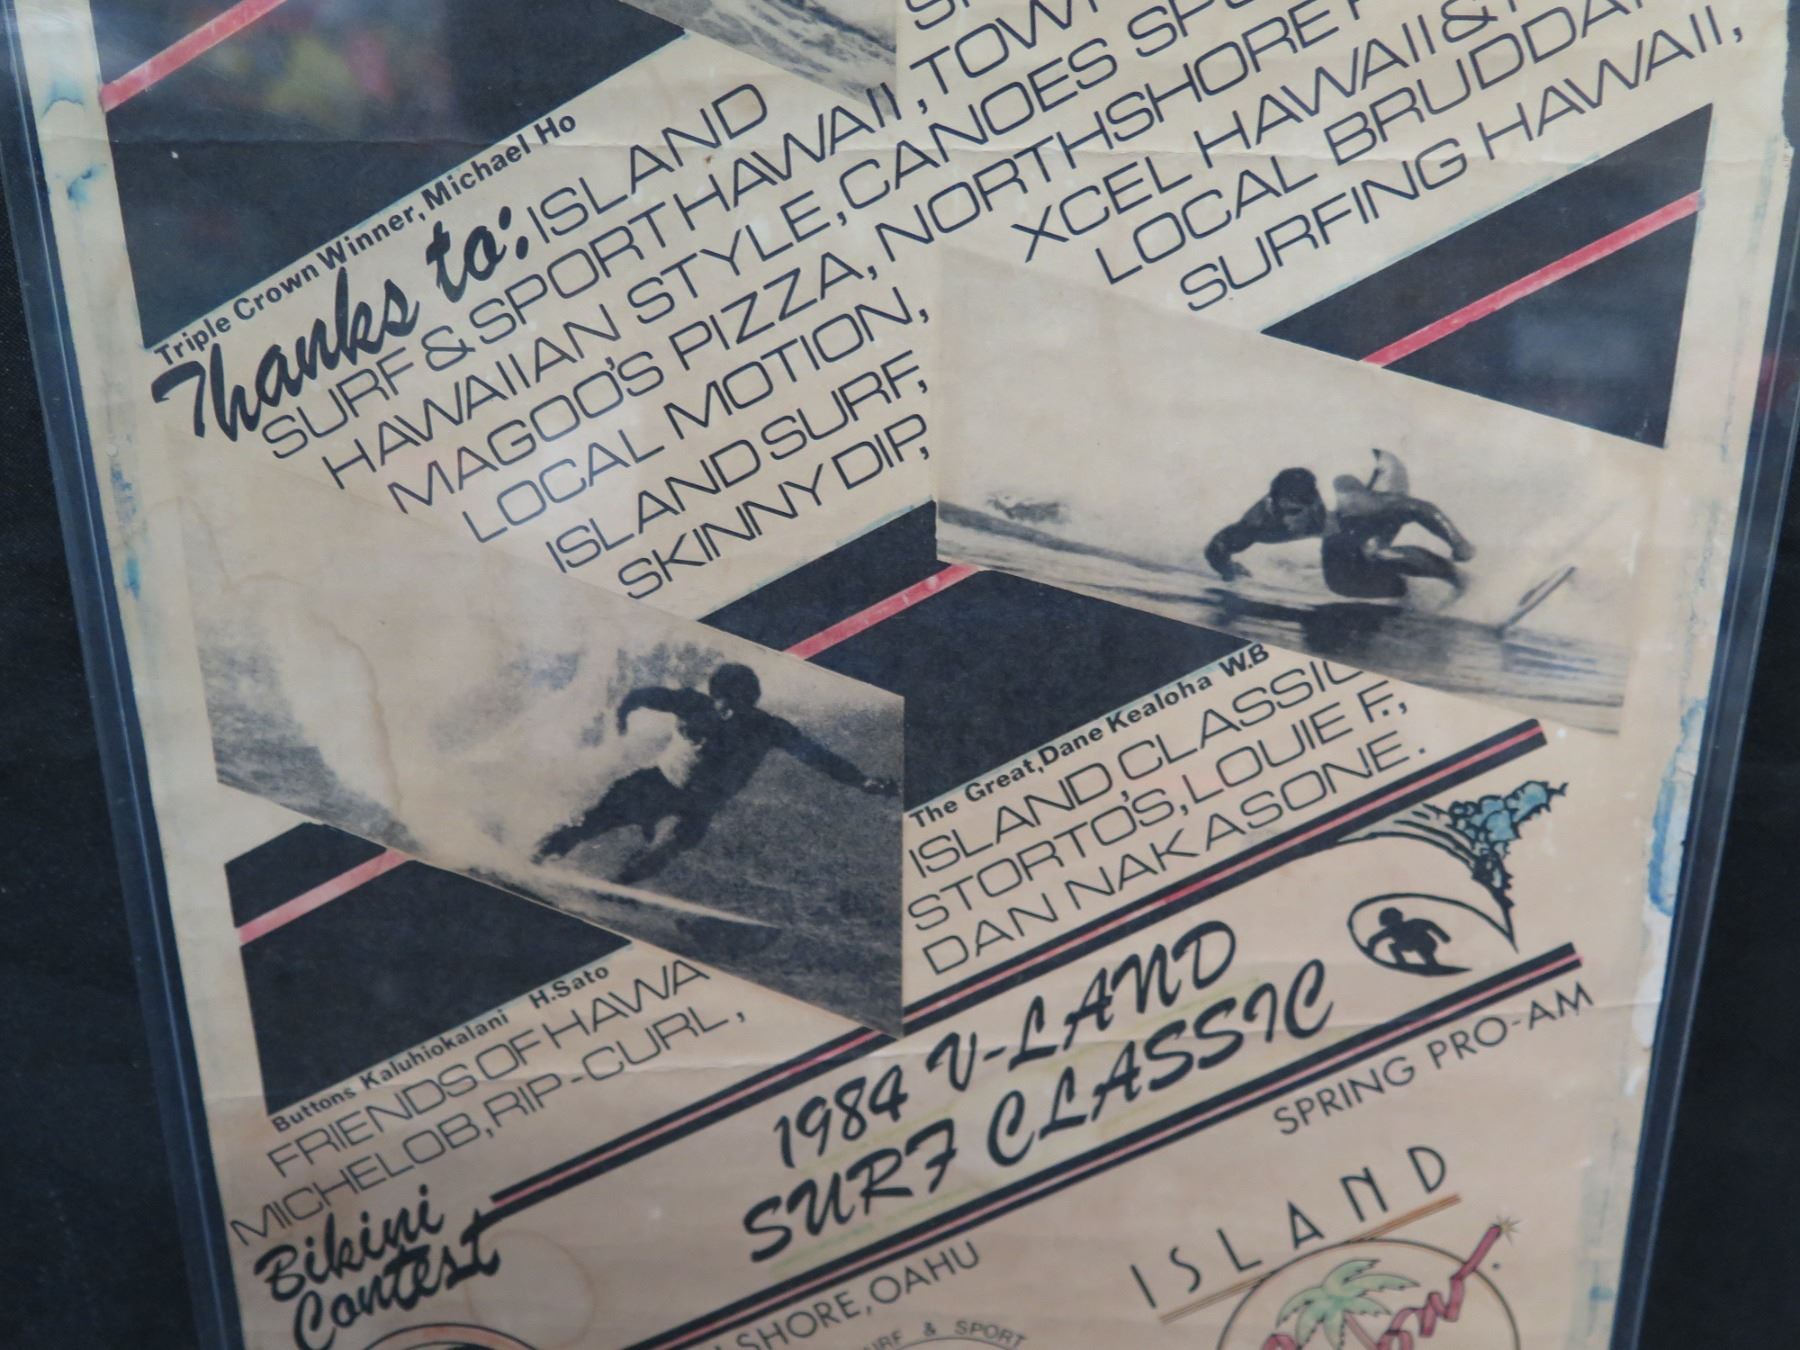 Triple Crown Winner, Michael Ho
Thanks to: ISLAND
SURF & SPORT HAWAII, TOW
HAWAIIAN STYLE, CANOES
MAGOO'S PIZZA, NORTHSHORE
LOCAL MOTION, XCEL HAWAII &
ISLAND SURF, LOCAL BRUDDA
SKINNY DIP, SURFING HAWAII,
The Great, Dane Kealoha W.B
ISLAND, CLASSIC
STORTO'S, LOUIE F.,
DAN NAKASONE.
Buttons Kaluhiokalani H.Sato
FRIENDS OF HAWA
MICHELOB, RIP-CURL,
Bikini
Contest
1984 V-LAND
SURF CLASSIC
SPRING PRO-AM
SHORE, OAHU
URF & SPORT
ISLAND